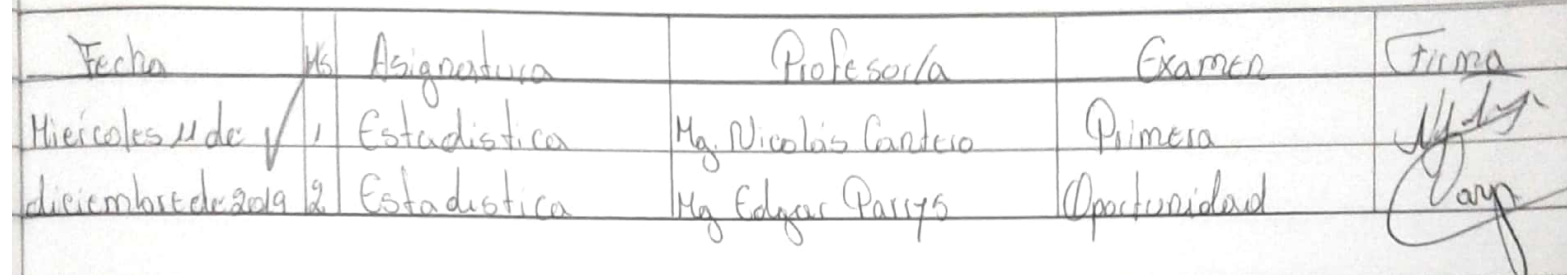 Fecha Hs Asignatura Profesor/a Examen Firma
Miércoles 11 de 1 Estadística Mg. Nicolás Cantero Primera
diciembre de 2019 2 Estadística Mg Edgar Parrys Oportunidad